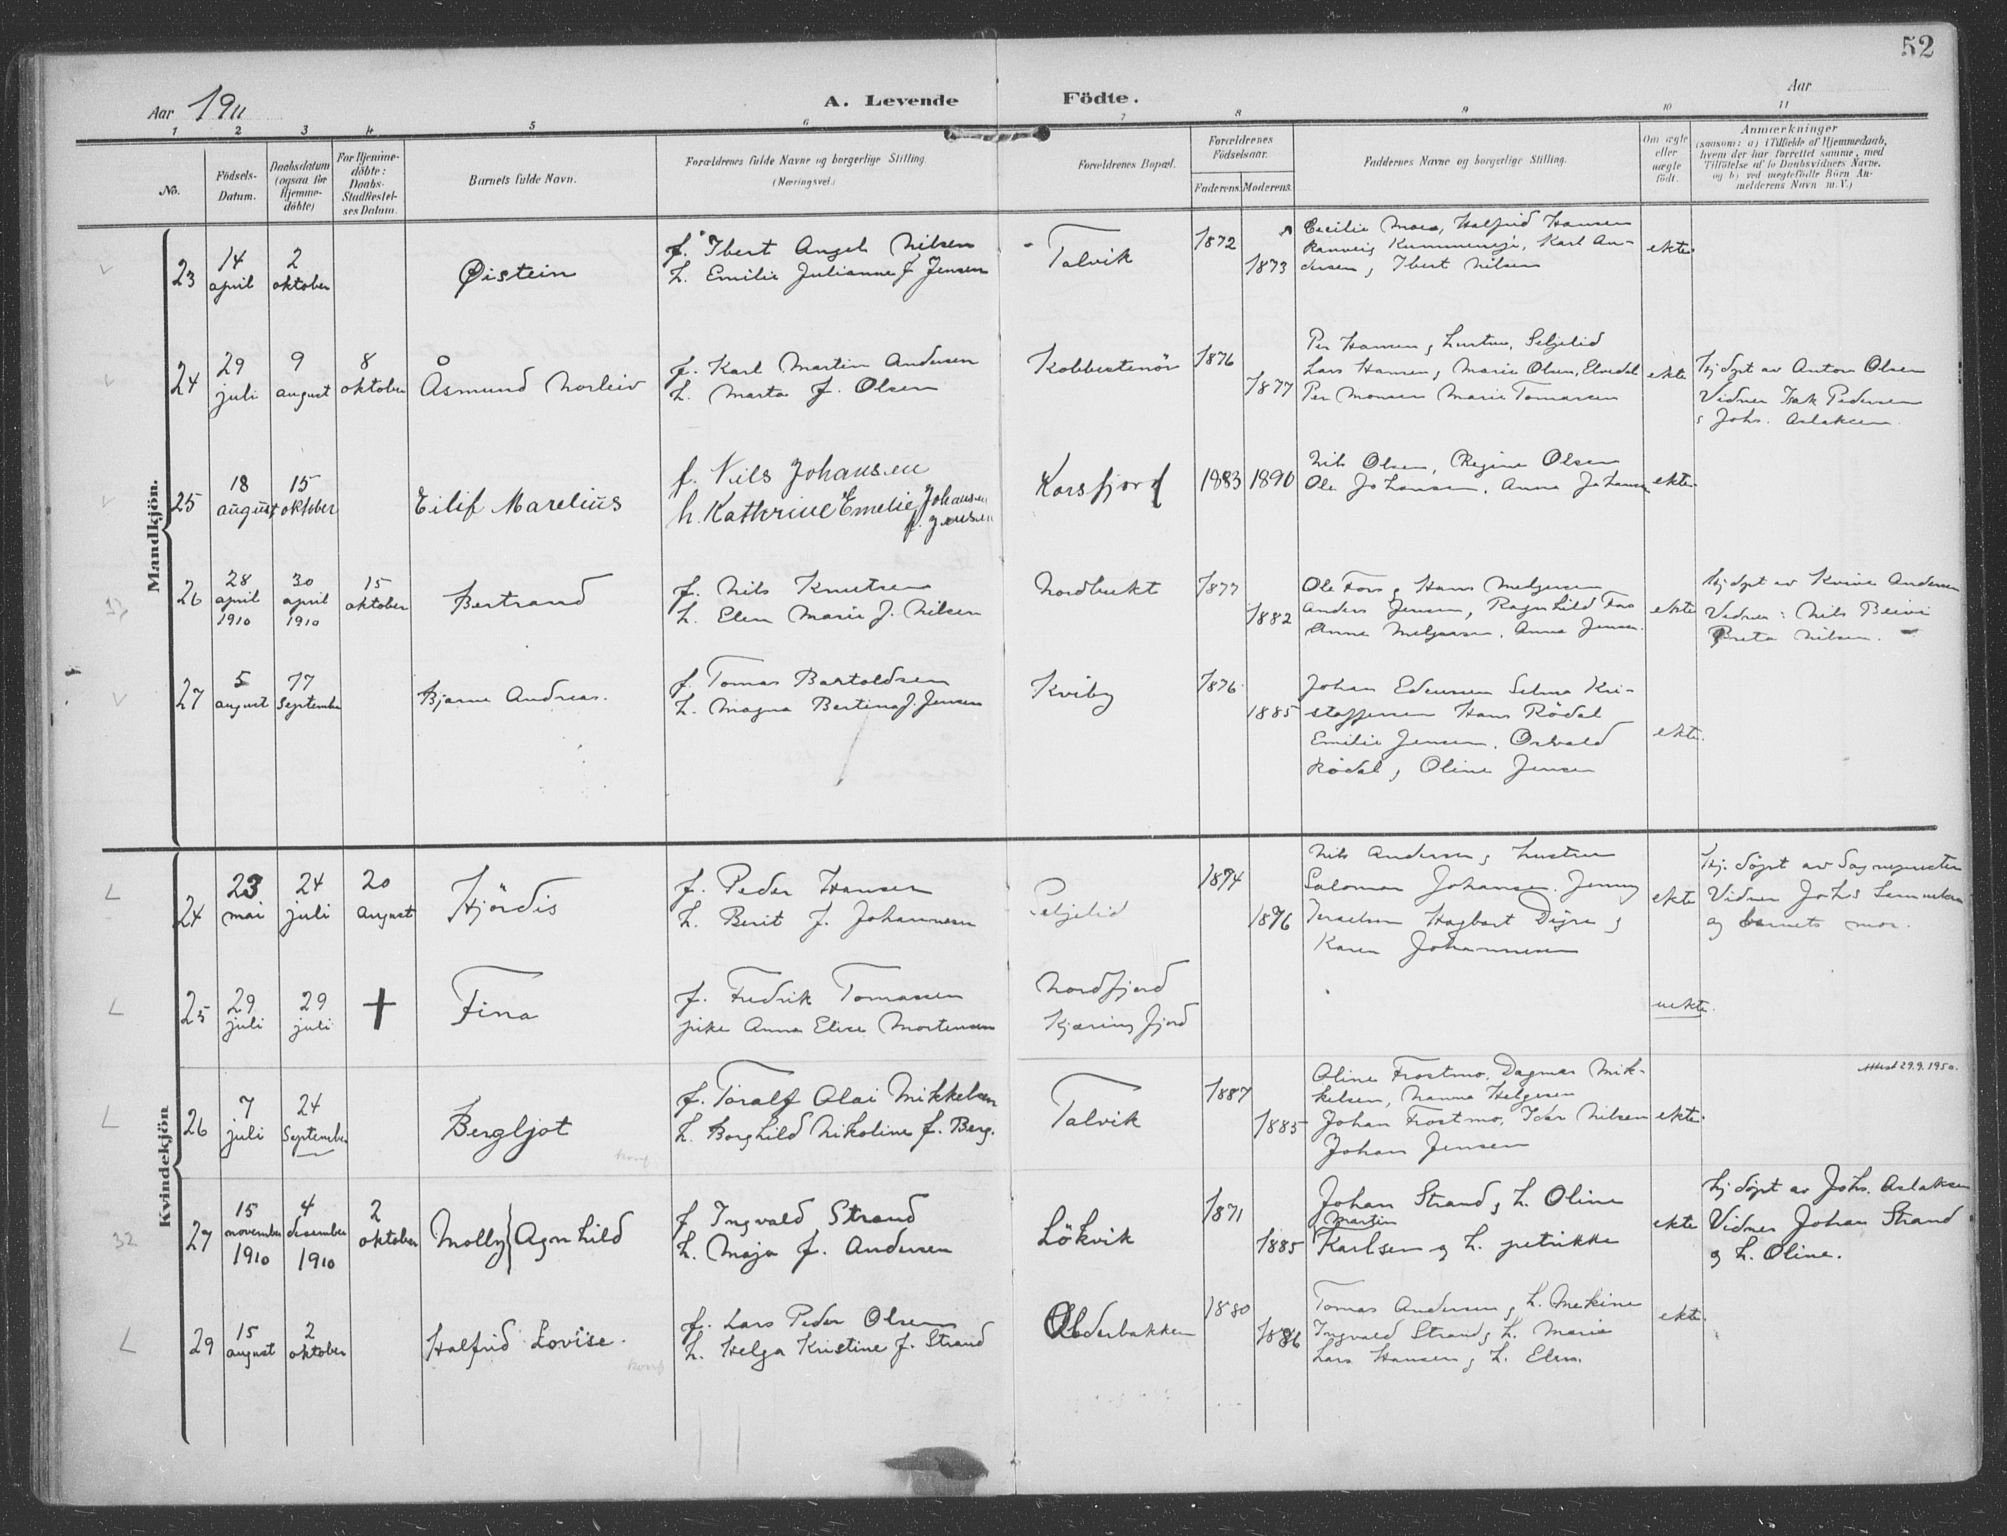 52
Aar 1911
A. Levende Födte.
Aar
1 2 3 4 5 6 7 8 9 10 11
No.
Födsels-
Datum.
Daabsdatum
(ogsaa for
Hjemme-
döbte)
For Hjemme-
döbte:
Daabs-
Stadfæstel-
ses Datum.
Barnets fulde Navn.
Forældrenes fulde Navne og borgerlige Stilling
(Næringsvei.)
Forældrenes Bopæl.
Forældrenes
Födselsaar.
Faderens. Moderens.
Faddernes Navne og borgerlige Stilling.
Om ægte
eller
uægte
födt.
Anmærkninger
(saasom: a) i Tilfælde af Hjemmedaab,
hvem der har forrettet samme, med
Tilföielse af to Daabsvidners Navne,
og b) ved uegtefödte Börn An-
melderens Navn m. V.)
Mandkjön.
23
14
april
2
oktober
Øistein
f. Ibert Angel Nilsen
h. Emilie Julianne f. Jensen
Talvik
1872
1873
Cecilie Moes, Halfrid Hansen
Ranveig Kummeneje, Karl An-
dersen, Ibert Nilsen
ekte
24
29
juli
9
august
8
oktober
Åsmund Norleiv
f. Karl Martin Andersen
h. Marta f. Olsen
Kobbestenör
1876
1877
Per Hansen, hustru, Seljelid
Lars Hansen, Marie Olsen, Elvedal
Per Monsen Marie Tomassen
ekte
Hj. døpt av Anton Olsen
Vidner Isak Pedersen
& Johs. Aslaksen
25
18
august
15
oktober
Eilif Marelius
f. Nils Johansen
h. Kathrine Emelie Johansen
f. Jensen
Korsfjord
1883 1890
Nils Olsen, Regine Olsen
Ole Johansen, Anna Johansen
ekte
26
28
april
1910
30
april
1910
15
oktober
Bertrand
f. Nils Knutsen
h. Elen Marie f. Nilsen
Nordbukt
1877
1882
Ole Fors, Hans Melgersen
Anders Jensen, Ragnhild Fors
Anne Melgersen, Anna Jensen
ekte
Hj. døpt av Kvive Andersen
Vidner: Nils Beivi
Preta Nilsen.
27
5
august
17
september
Bjarne Andreas.
f. Tomas Bartoldsen
h. Magna Bertina f. Jensen
Kviby
1876
1885
Johan Edensen Selma Kri-
stoffersen Hans Rödal
Emilie Jensen, Osvald
Rödal, Oline Jensen
ekte
Kvindekjön
24
23
mai
24
juli
20
august
Hjördis
f. Peder Hansen
h. Berit f. Johannesen
Seljelid
1874
1876
Nils Andersen, hustru
Salomon Johansen, Jenny
Israelsen Hagbart Digre,
Karen Johannesen
ekte
Hj. døpt av Sognepresten
Vidner Johs
og barnets mor.
25
29
juli
29
juli
+
Fina
f. Fredrik Tomassen
pike Anna Elise Mortensen
Nordfjord
Kjæringfjord
uekte.
26
7
juli
24
September
Bergljot
konf
f. Toralf Olai Mikkelsen
h. Borghild Nikoline f. Berg.
Talvik
1887
1885
Oline Frostmo, Dagmar Mik-
kelsen, Nanna Helgesen
Johan Frostmo, Idar Nilsen
Johan Jensen
ekte
Attest 29.9.1950.
32
27
15
november
1910
4
desember
1910
2
oktober
Molly Agnhild
f. Ingvald Strand
h. Maja f. Andersen
Lökvik
1871
1885
Johan Strand, h. Oline
Martin
Karlsen og h. petrikke
ekte
hj. døpt av Johs. Aslaksen
Vidner Johan Strand
og h. Oline.
29
15
august
2
oktober
Halfrid Lovise.
konf
f. Lars Peder Olsen
h. Helga Kristine f. Strand
Olderbakken
1880
1886
Tomas Andersen, h. Mekine
Ingvald Strand, h. Marie
Lars Hansen, h. Elen.
ekte.